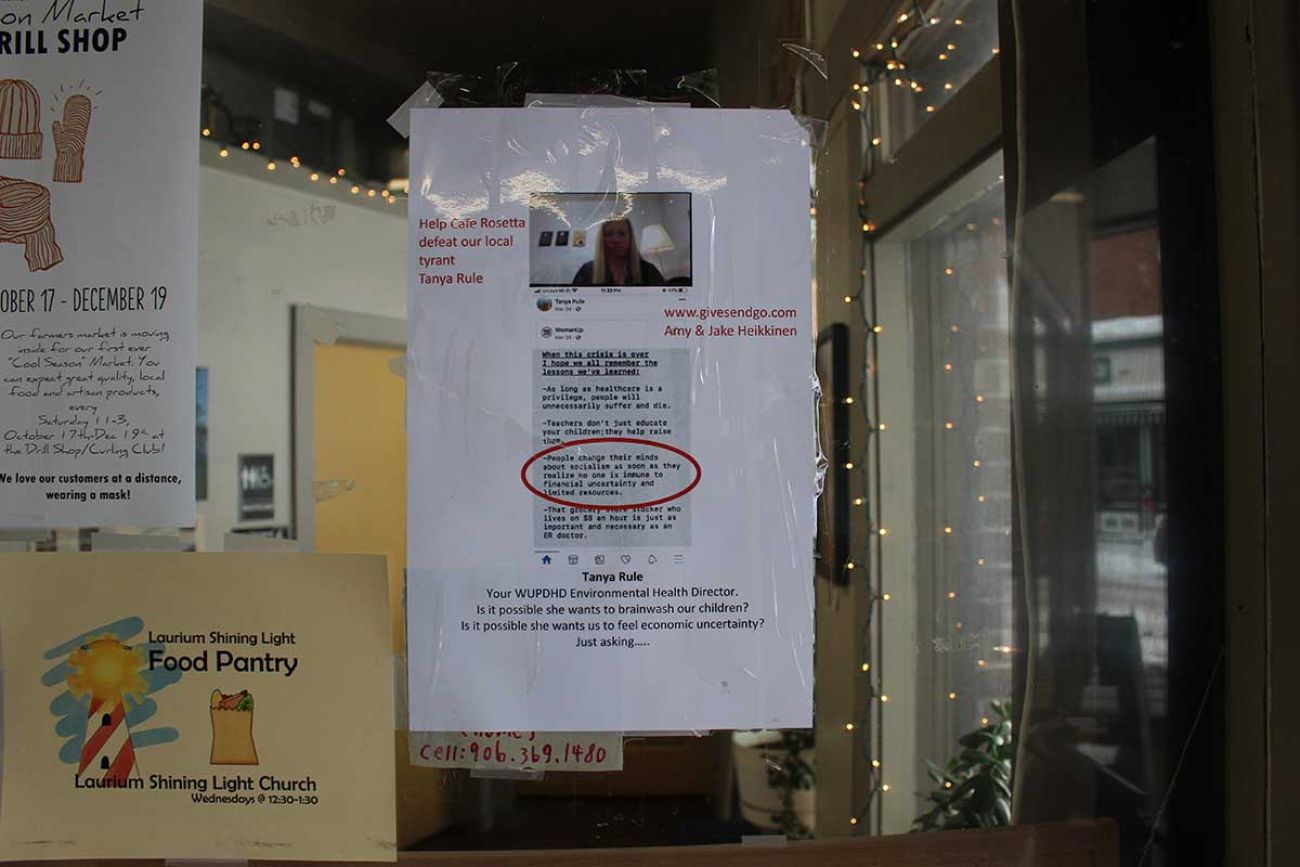 on Market
RILL SHOP
OBER 17 - DECEMBER 19
Our farmers market is moving
inside for our first ever
"Cool Season" Market. You
can expect great quality, local
food and artisan products,
every
Saturday 11-3,
October 17th-Dec 19th at
the Drill Shop/Curling Club!
We love our customers at a distance,
wearing a mask!
Laurium Shining Light
Food Pantry
Laurium Shining Light Church
Wednesdays @ 12:30-1:30
Help Cafe Rosetta
defeat our local
tyrant
Tanya Rule
Tanya Rule
www.givesendgo.com
Amy & Jake Heikkinen
WomanUp
When this crisis is over
I hope we all remember the
lessons we've learned:
-As long as healthcare is a
privilege, people will
unnecessarily suffer and die.
-Teachers don't just educate
your children;they help raise
them.
-People change their minds
about socialism as soon as they
realize no one is immune to
financial uncertainty and
limited resources.
-That grocery store stocker who
lives on $8 an hour is just as
important and necessary as an
ER doctor.
Tanya Rule
Your WUPDHD Environmental Health Director.
Is it possible she wants to brainwash our children?
Is it possible she wants us to feel economic uncertainty?
Just asking.....
Cell:906.369.1480